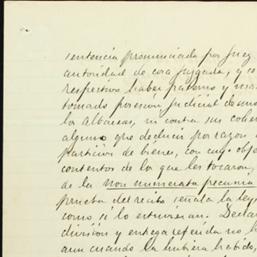 sentencia pronunciada por Juez
autoridad de cosa juzgada, y co
respectivos haber paterno y mat
tomado posesion judicial de sus
los Albaceas, ni contra sus cohere
alguno que deducir por razon d
particion de bienes, con cuyo obje
contentos de lo que les tocaron,
de la non numerata pecunia
prueba del recibo señala la ley
como si lo estuvieran. Declar
division y entrega referida no h
aun cuando la hubiera habido,